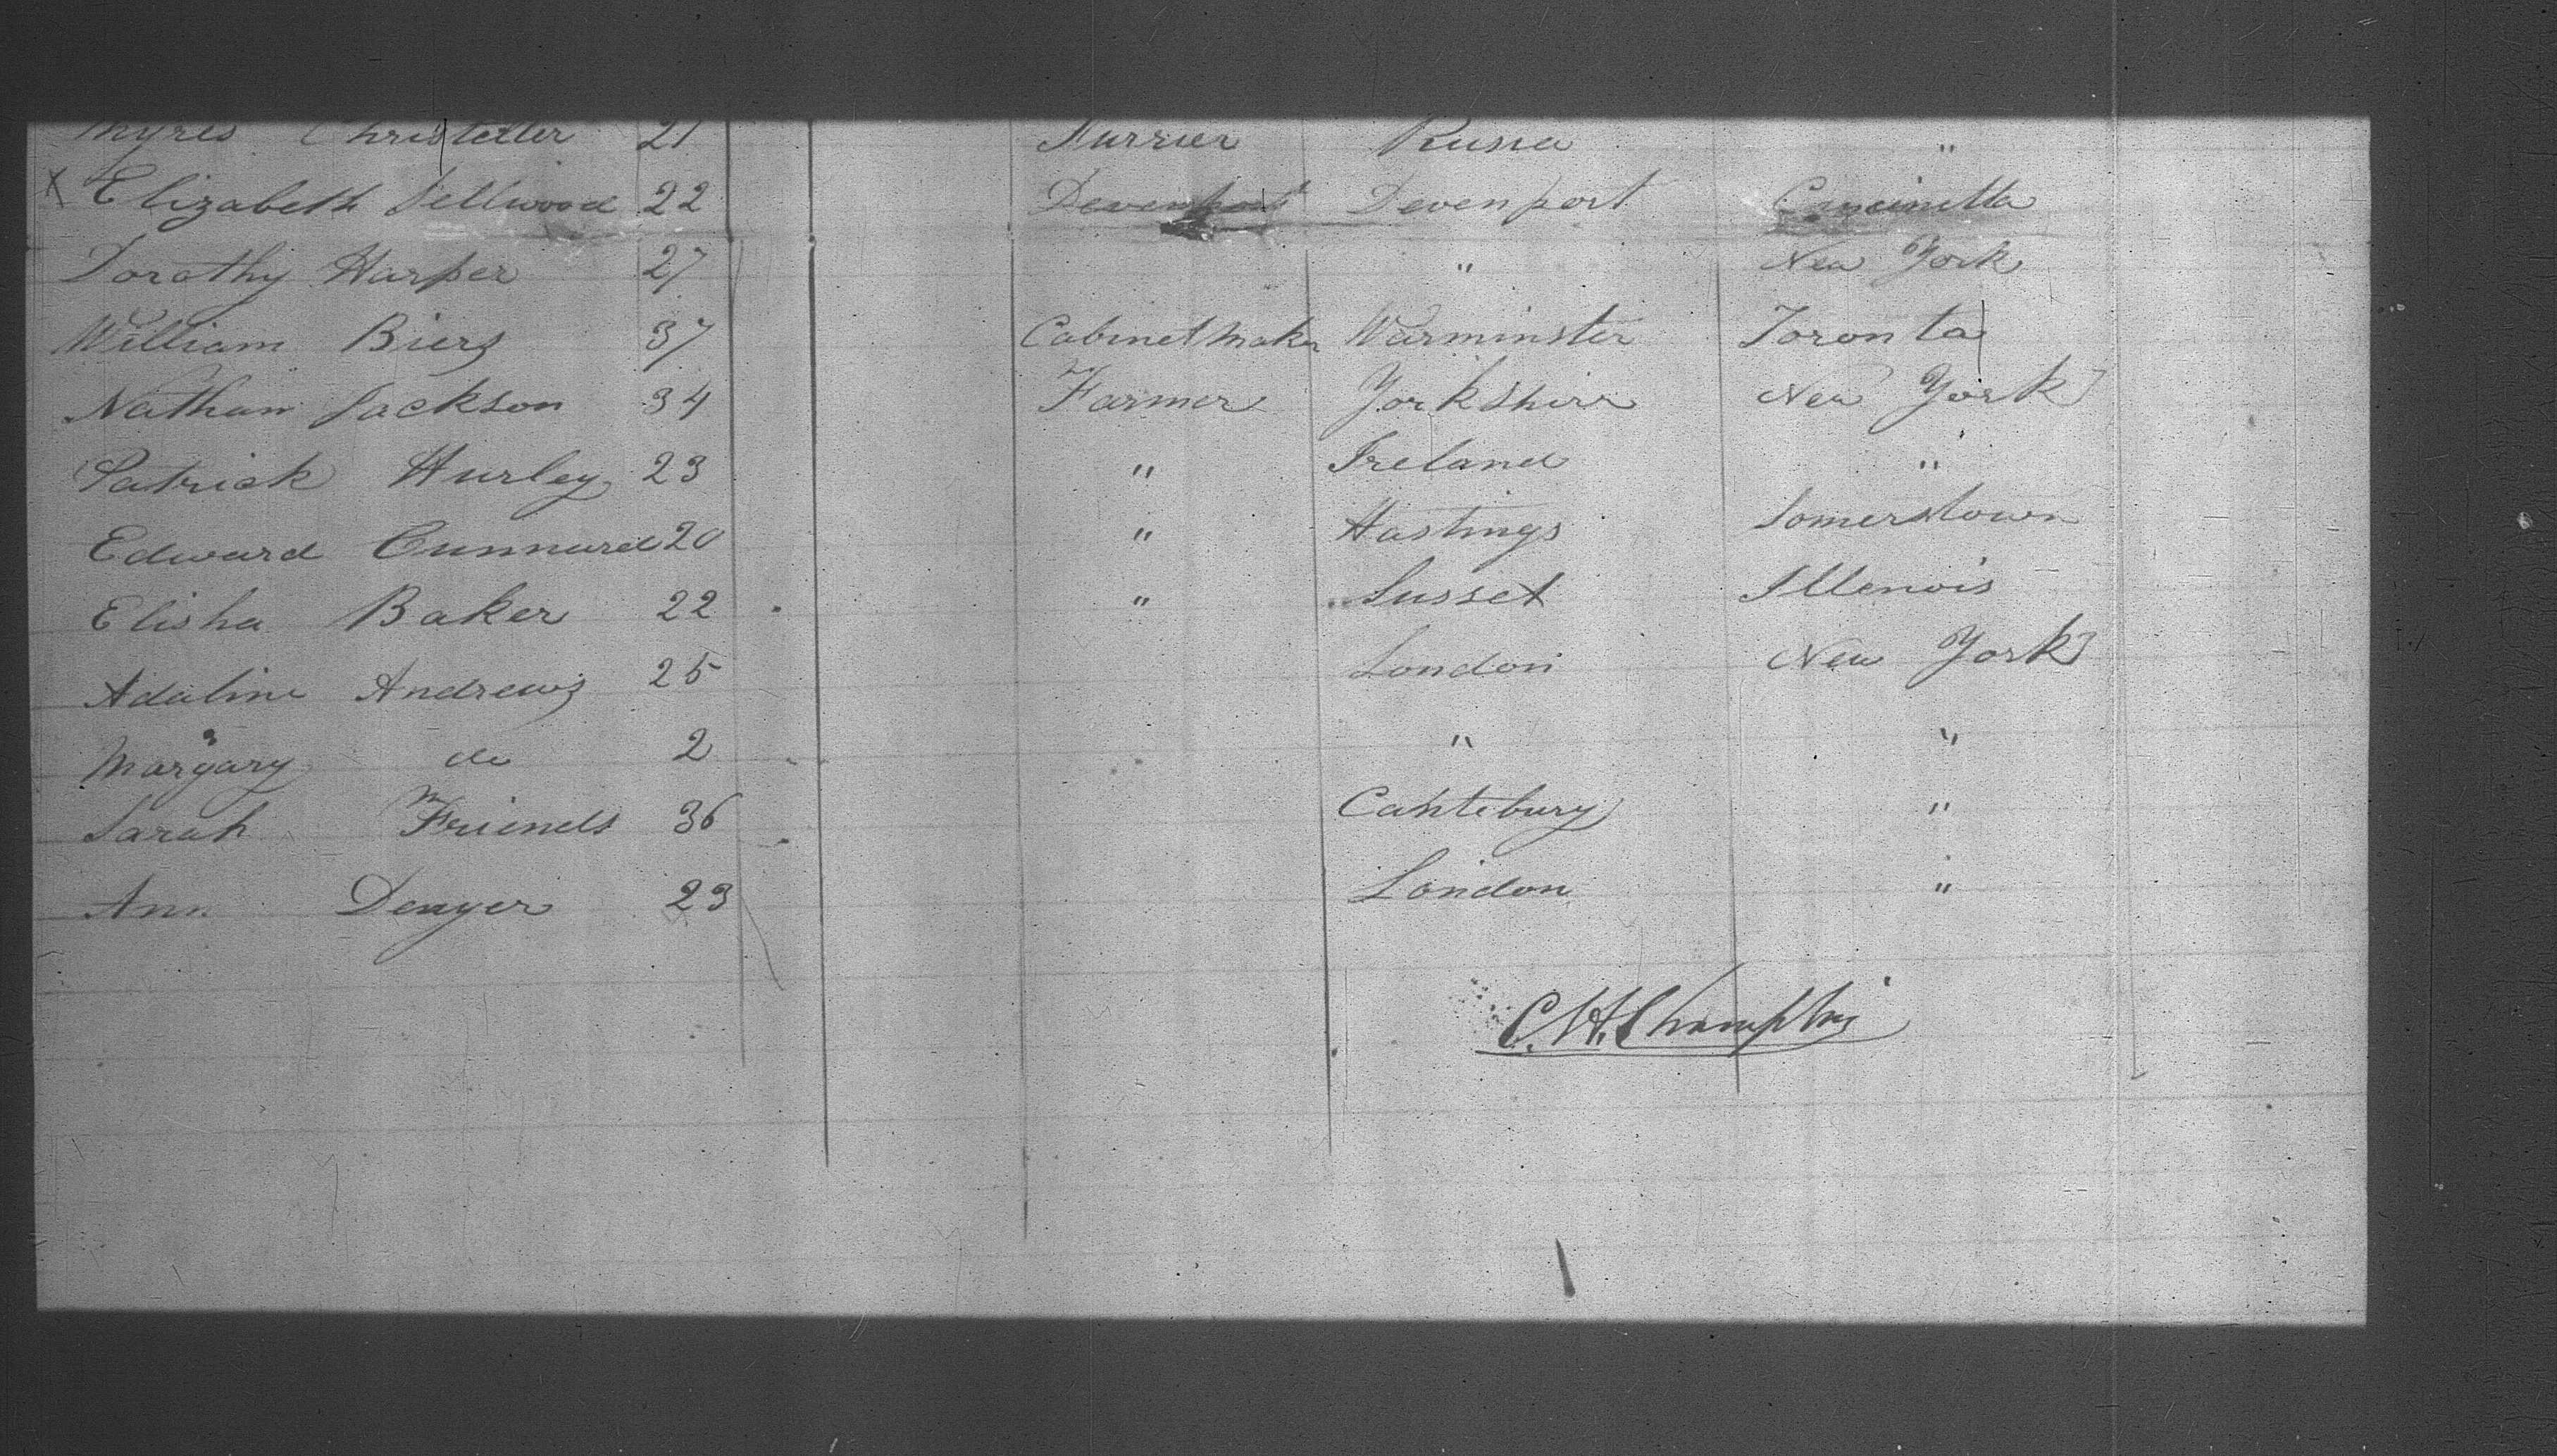 Myres Christeller 21 Furrier Russia "
X Elizabeth Sellwood 22 Devenport Devenport Cincinetta
Dorothy Harper 27 " New York
William Biers 37 Cabinet Maker Warminster Toronta
Nathan Jackson 34 Farmer Yorkshire New York
Patrick Hurley 23 " Ireland "
Edward Cunnard 20 " Hastings Somerstown
Elisha Baker 22 " Sussex Illenois
Adaline Andrews 25 London New York
Margary do 2 " "
Sarah Friends 36 Cantebury "
Ann Denyer 23 London "
C. H. Champlin